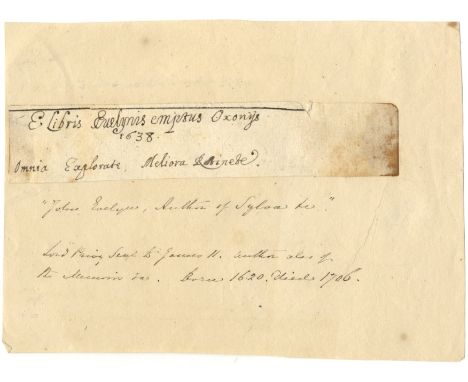 E Libris Evelynis emptus Oxonijs
1638.
Omnia Explorate, Meliora Retinete.
"John Evelyn, Author of Sylva &c".
Lord Privy Seal to James II. author also of
the Memoirs &c. born 1620. Died 1706.